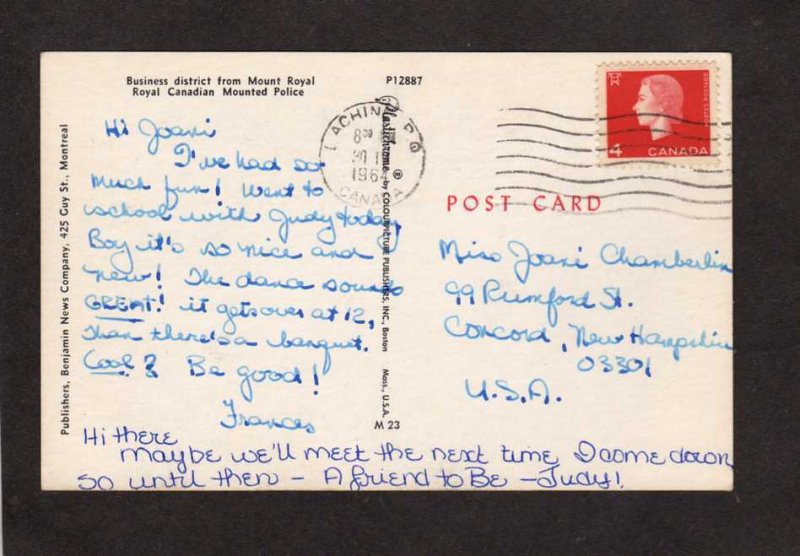 Business district from Mount Royal
Royal Canadian Mounted Police
P12887
Publishers, Benjamin News Company, 425 Guy St., Montreal
Plastichrome ® by COLOURPICTURE PUBLISHERS, INC., Boston Mass., U.S.A.
M 23
LACHINE P.Q
8 30
196
CANADA
4 CANADA
POST CARD
Hi Joani
I've had so
much fun! Went to
school with Judy today,
Boy it's so nice and
new! The dance sounds
GREAT! it gets over at 12,
than there's a banquet.
Cool? Be good!
Frances
Hi there
maybe we'll meet the next time I come down
so until then - A friend to Be - Judy!
Miss Joani Chamberlin
99 Rumford St.
Concord, New Hampshire
03301
U.S.A.